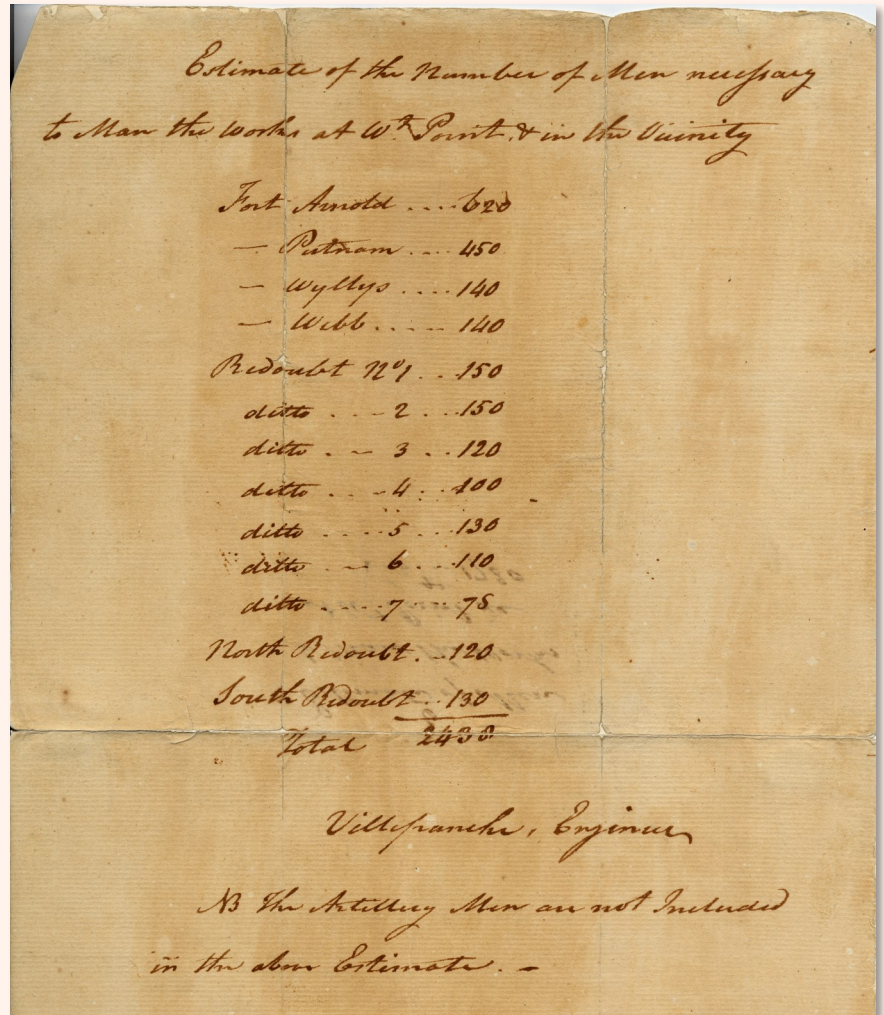 Estimate of the Number of Men necessary
to Man the works at Wt Point, & in the Vicinity
Fort Arnold .... 620
— Putnam .... 450
— Wyllys .... 140
— Webb ..... 140
Redoubt No 1 ... 150
ditto ... 2 ... 150
ditto . .. 3 ... 120
ditto ... 4 .. 100
ditto .... 5 ... 130
ditto ... 6 ... 110
ditto .... 7 75
North Redoubt ... 120
South Redoubt ... 130
Total 2438
Villefranche, Engineer
NB The Artillery Men are not Included
in the above Estimate. —